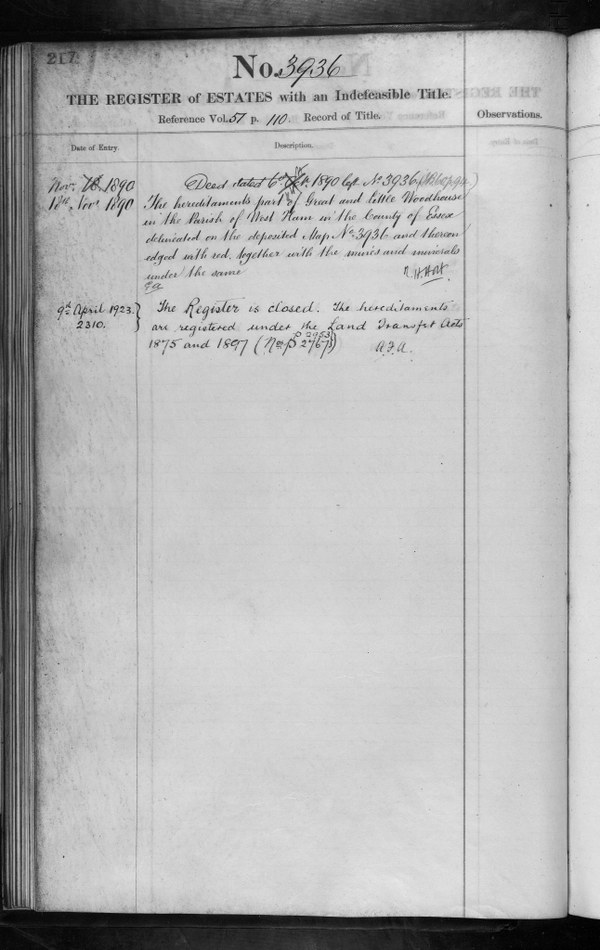 217
No. 3936
THE REGISTER of ESTATES with an Indefeasible Title.
Reference Vol. 51 p. 110. Record of Title.
Observations.
Date of Entry.
Description.
Nov. 1890
Deed dated 6th 1890 left No 3936
18th Nov 1890
The hereditaments part of Great and Little Woodhouse
in the Parish of West Ham in the County of Essex
delineated on the deposited Map No 3936 and thereon
edged with red, together with the mines and minerals
under the same
9th April 1923.
2310.
The Register is closed. The hereditaments
are registered under the Land Transfer Acts
1875 and 1897 (Nos P 2953
P 27673)
A.F.A.